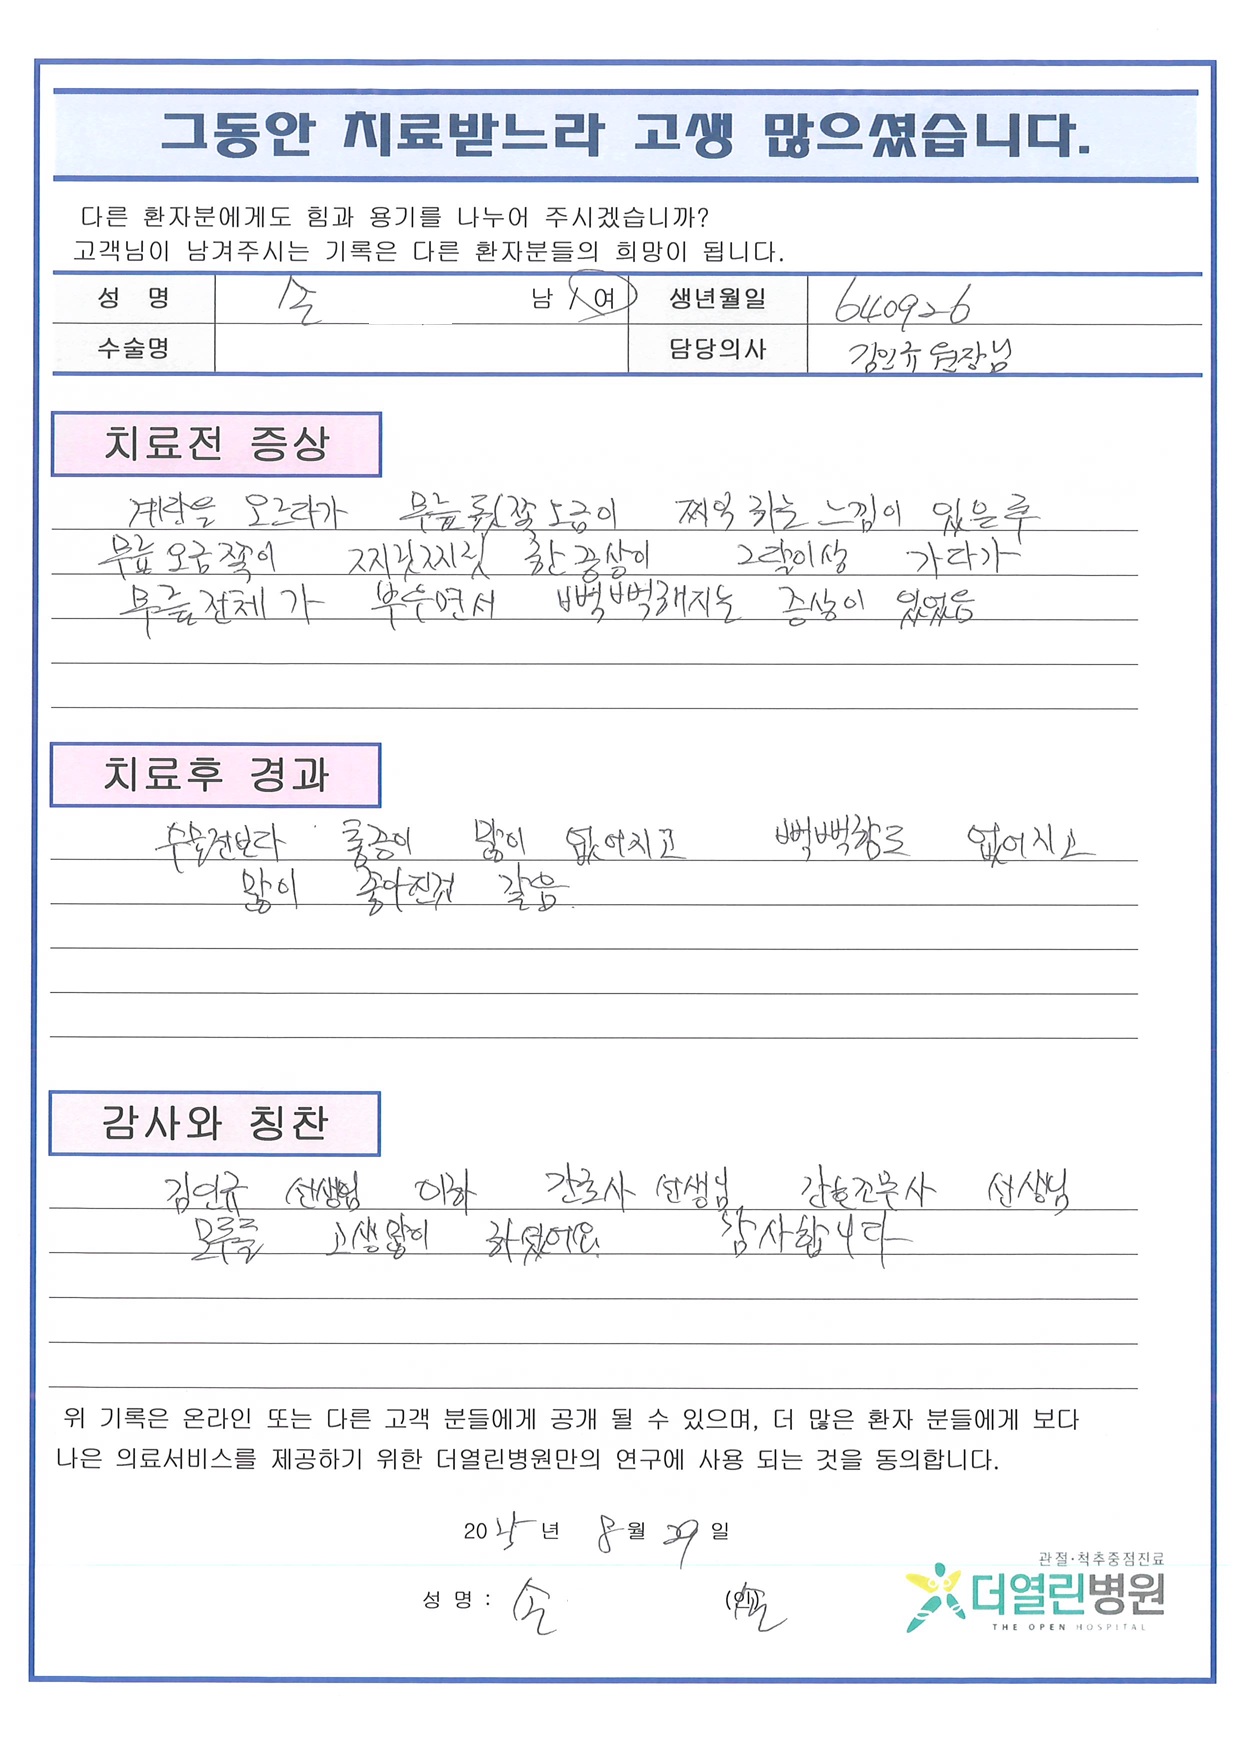 그동안 치료받느라 고생 많으셨습니다.
다른 환자분에게도 힘과 용기를 나누어 주시겠습니까?
고객님이 남겨주시는 기록은 다른 환자분들의 희망이 됩니다.
성 명 손 남 / 여 생년월일 640926
수술명 담당의사 김인규 원장님
치료전 증상
계단을 오르다가 무릎 뒤쪽 오금이 찌익 하는 느낌이 있은후
무릎 오금쪽이 찌릿찌릿 한 증상이 그랄이상 가다가
무릎전체가 부으면서 뻑뻑해지는 증상이 있었음
치료후 경과
수술전보다 통증이 많이 없어지고 뻑뻑함도 없어지고
많이 좋아진것 같음
감사와 칭찬
김인규 선생님 이하 간호사 선생님 간호조무사 선생님
모두들 고생많이 하셨어요 감사합니다
위 기록은 온라인 또는 다른 고객 분들에게 공개 될 수 있으며, 더 많은 환자 분들에게 보다
나은 의료서비스를 제공하기 위한 더열린병원만의 연구에 사용 되는 것을 동의합니다.
2025년 8월 29일
관절·척추중점진료
성 명 : 손 (인) 손
더열린병원
THE OPEN HOSPITAL